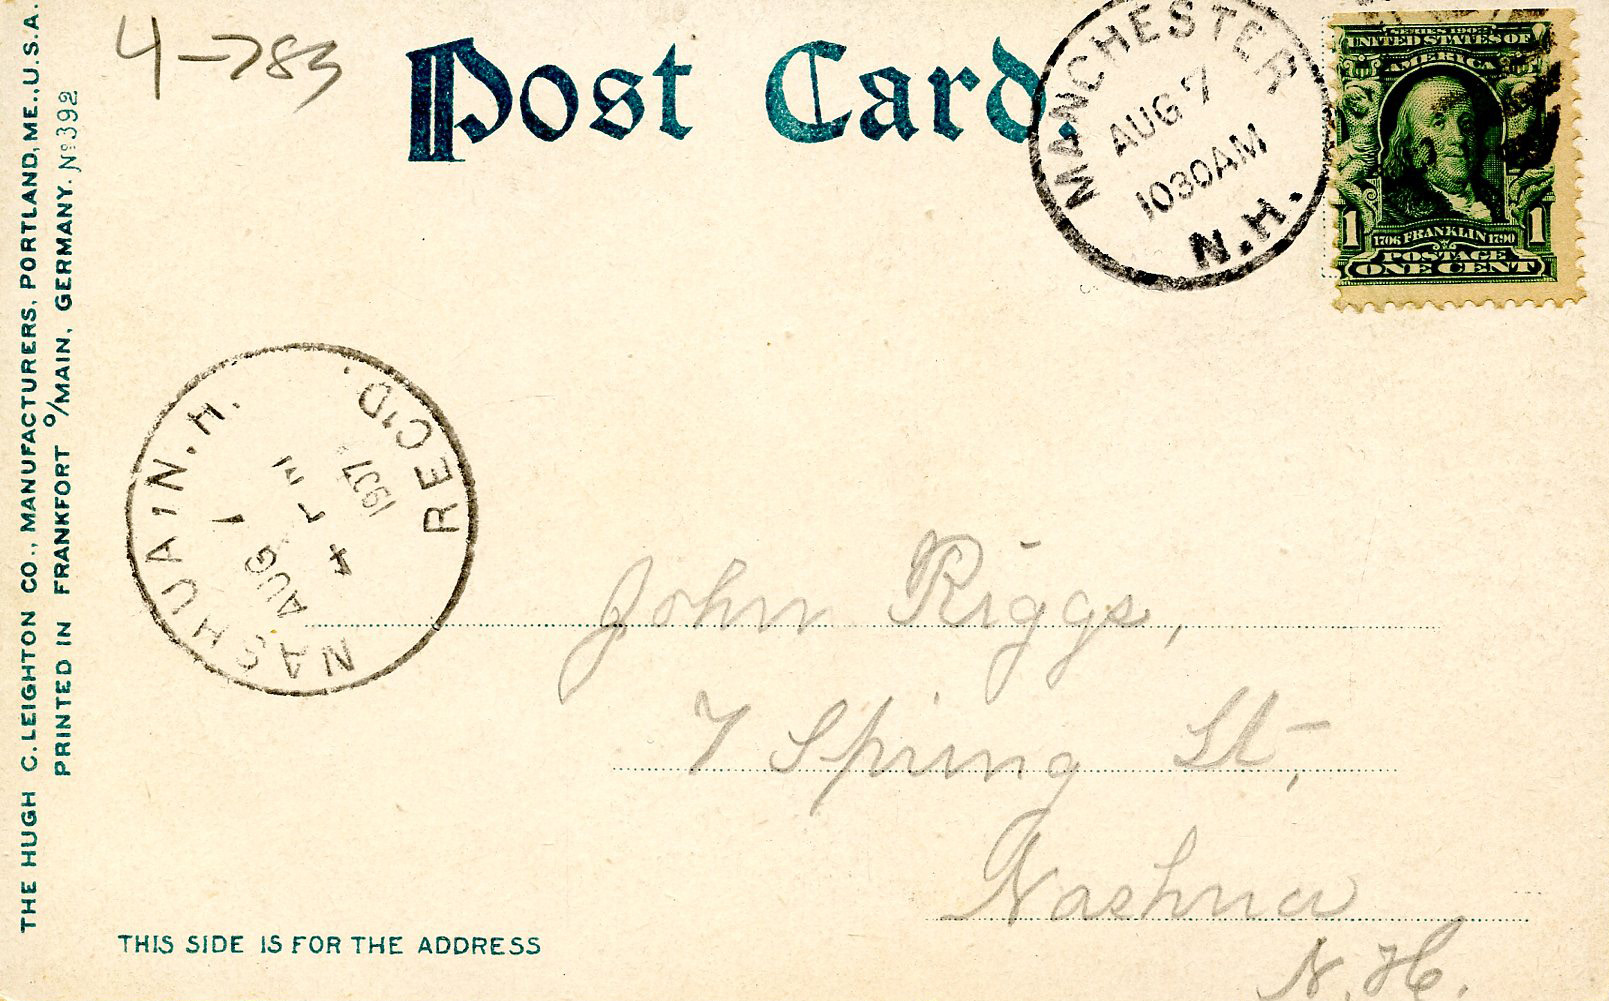 4-783
Post Card.
MANCHESTER
AUG 7
1030AM
N.H.
SERIES 1902
UNITED STATES OF
AMERICA
1706 FRANKLIN 1790
1 1
POSTAGE
ONE CENT
THE HUGH C. LEIGHTON CO., MANUFACTURERS, PORTLAND, ME., U.S.A.
PRINTED IN FRANKFORT O/MAIN, GERMANY. No 392
NASHUA N.H.
AUG
4
1907
REC'D.
John Riggs,
7 Spring St,
Nashua
N.H.
THIS SIDE IS FOR THE ADDRESS